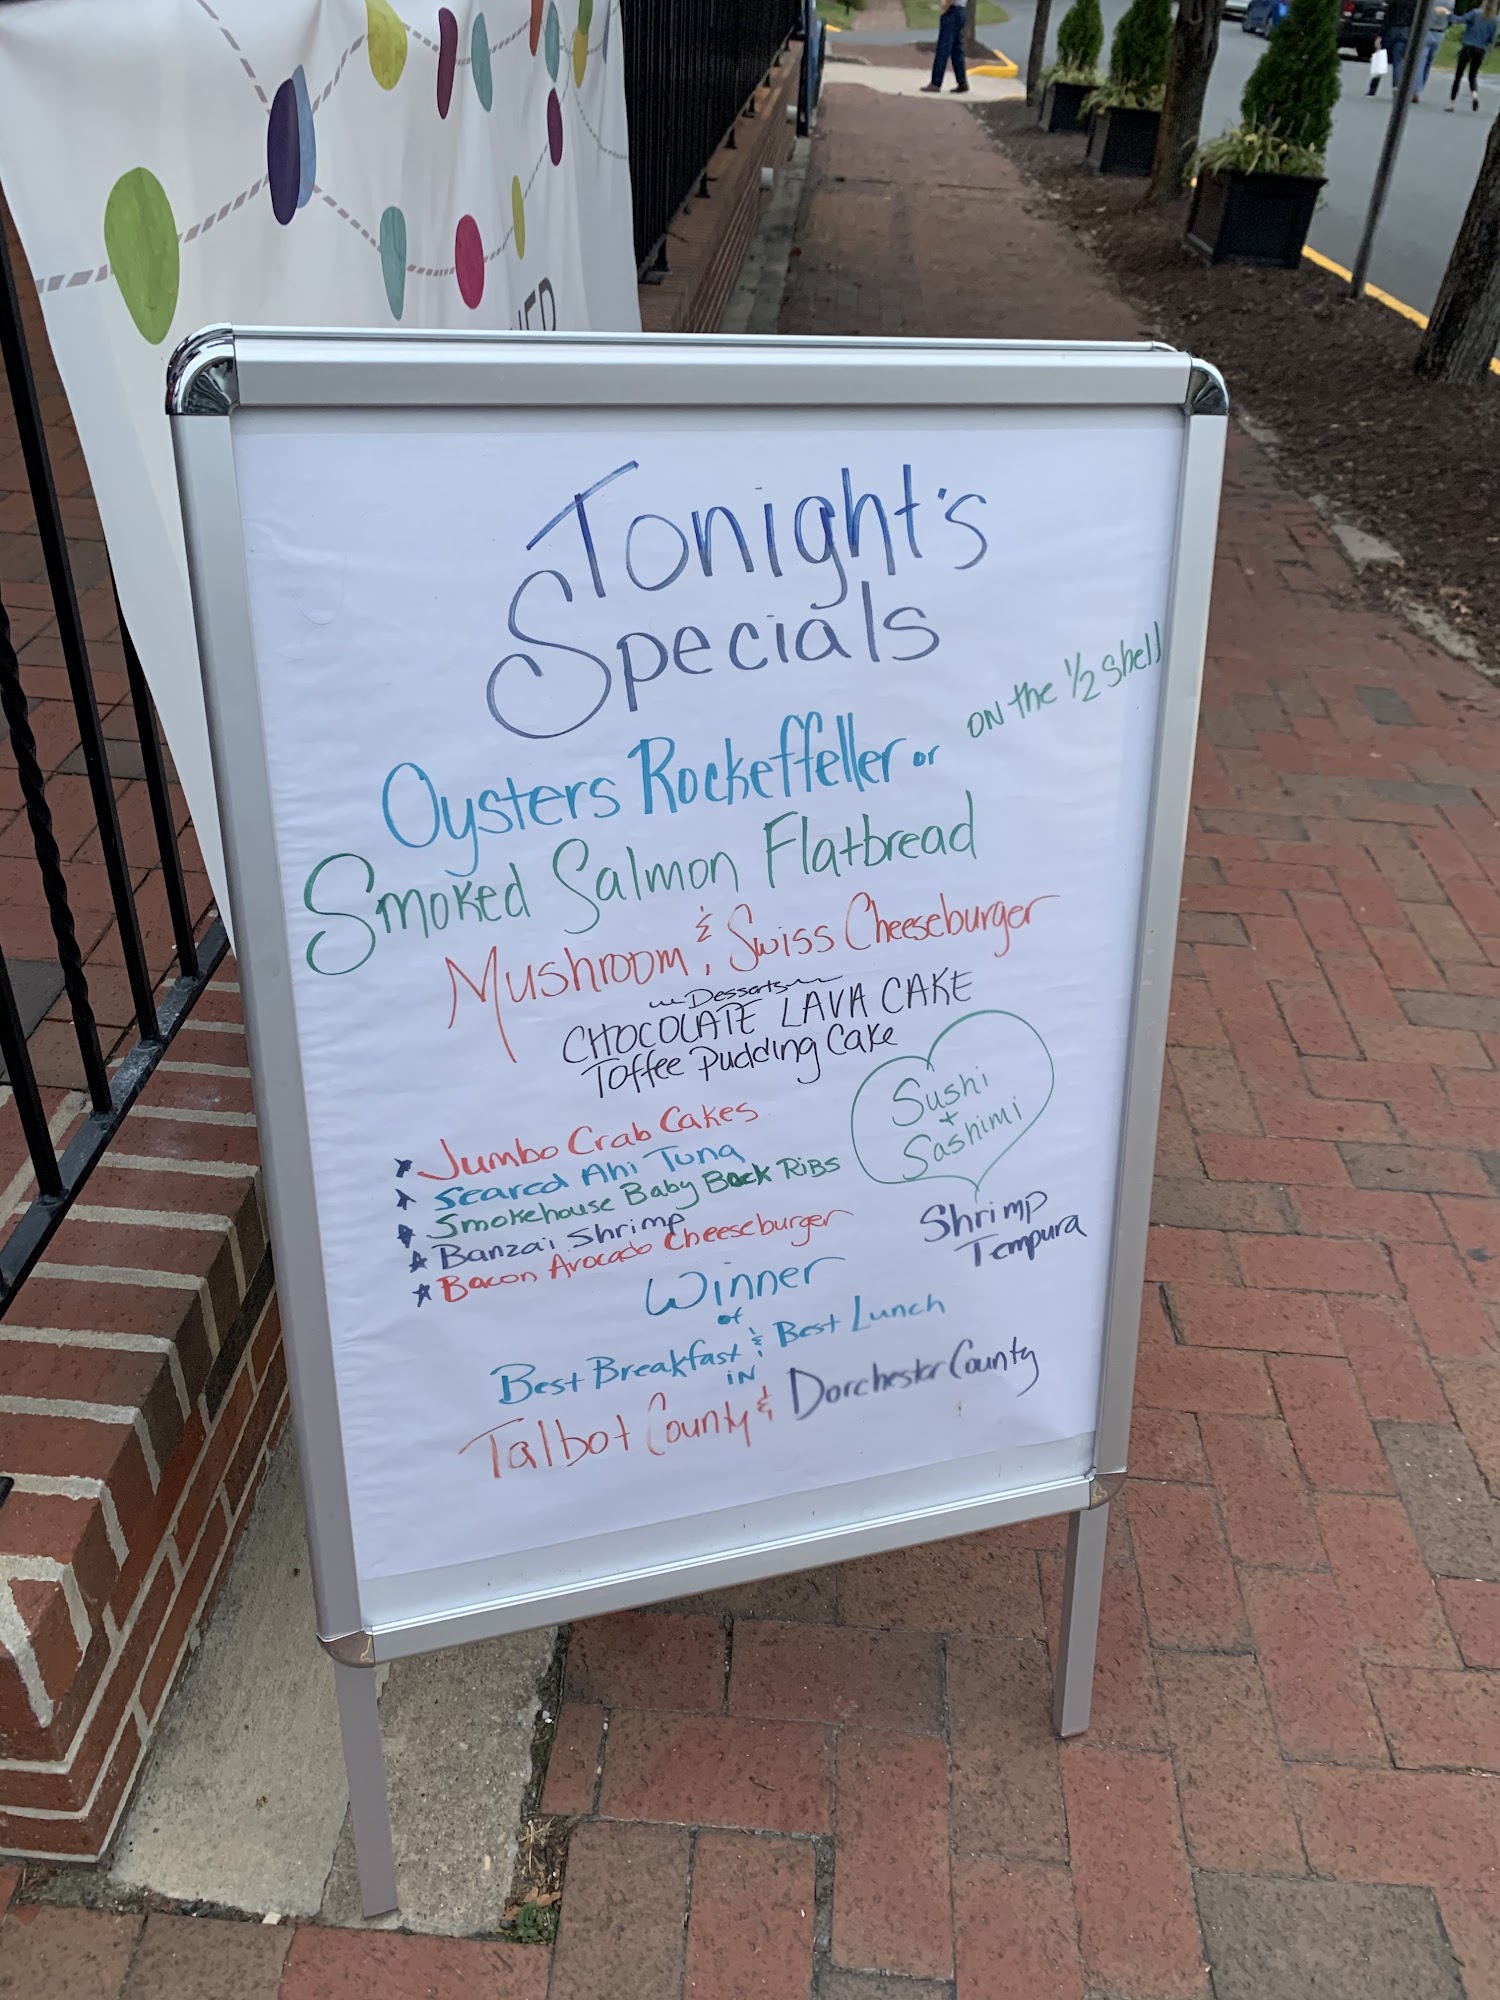 Tonight's
Specials
Oysters Rockeffeller or on the 1/2 shell
Smoked Salmon Flatbread
Mushroom & Swiss Cheeseburger
Desserts
CHOCOLATE LAVA CAKE
Toffee Pudding Cake
Sushi
+
Sashimi
Jumbo Crab Cakes
Seared Ahi Tuna
Smokehouse Baby Back Ribs
Banzai Shrimp
Bacon Avocado Cheeseburger
Shrimp
Tempura
Winner
of
Best Breakfast & Best Lunch
in
Talbot County & Dorchester County